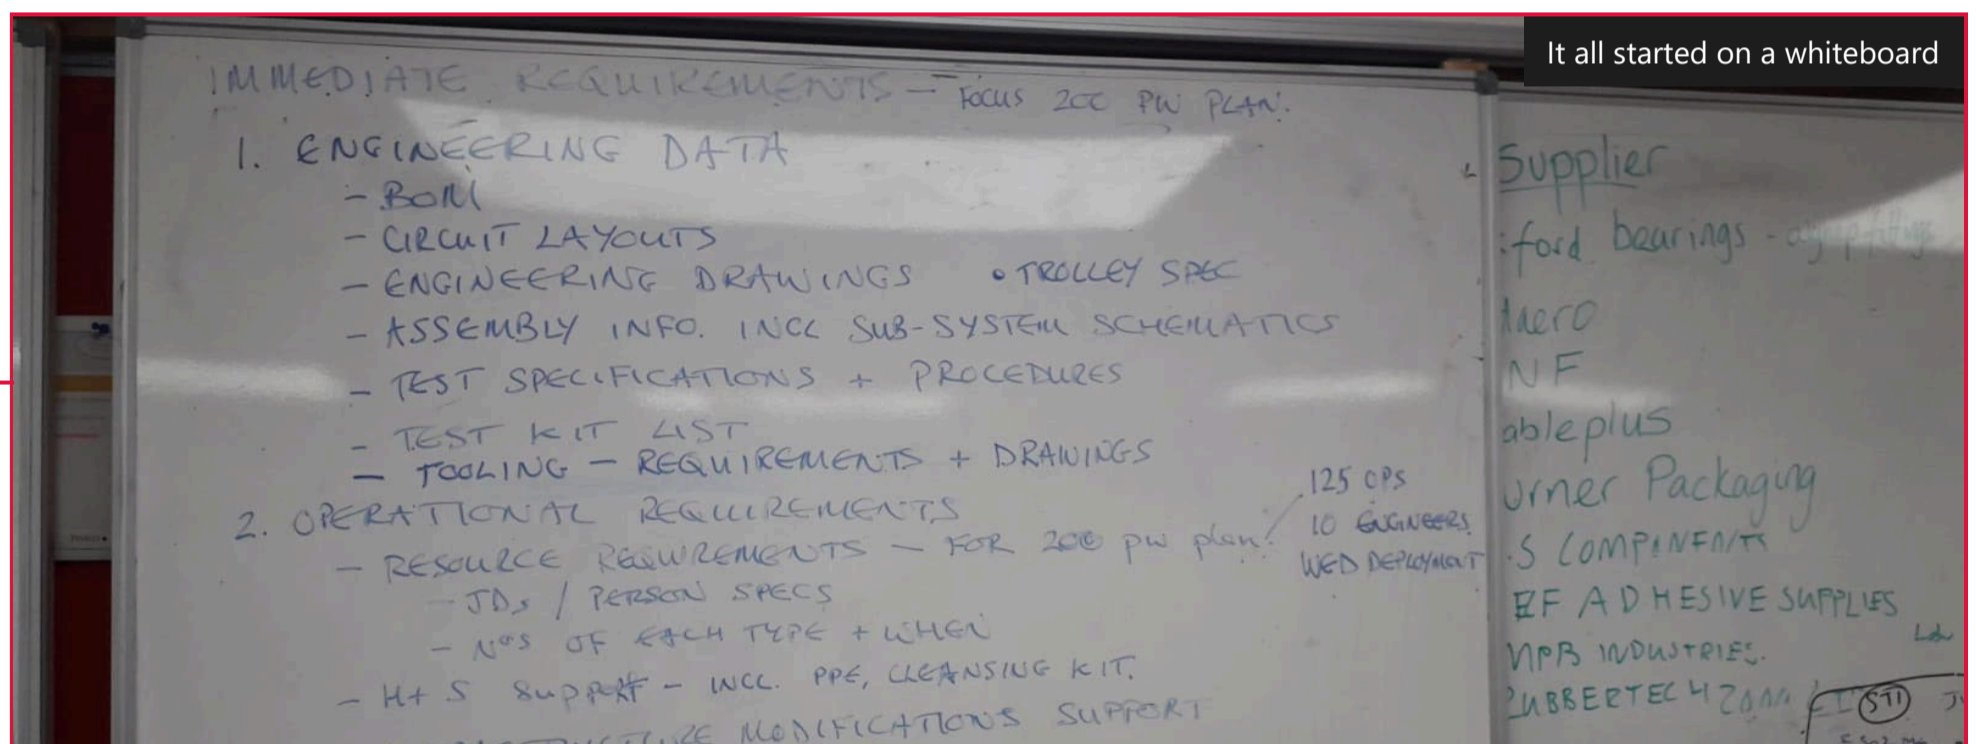 It all started on a whiteboard
IMMEDIATE REQUIREMENTS - FOCUS 200 PW PLAN.
1. ENGINEERING DATA
- BOM
- CIRCUIT LAYOUTS
- ENGINEERING DRAWINGS • TROLLEY SPEC
- ASSEMBLY INFO. INCL SUB-SYSTEM SCHEMATICS
- TEST SPECIFICATIONS + PROCEDURES
- TEST KIT LIST
- TOOLING - REQUIREMENTS + DRAWINGS
2. OPERATIONAL REQUIREMENTS
- RESOURCE REQUIREMENTS - FOR 200 pw plan.
125 OPS
10 ENGINEERS
WED DEPLOYMENT
- JDs / PERSON SPECS
- Nos OF EACH TYPE + WHEN
- H+S Support - INCL. PPE, CLEANSING KIT.
MODIFICATIONS SUPPORT
Supplier
ford bearings -
aero
NF
ableplus
urner Packaging
S COMPONENTS
EF ADHESIVE SUPPLIES
MPB INDUSTRIES.
RUBBERTECH 2000
STI